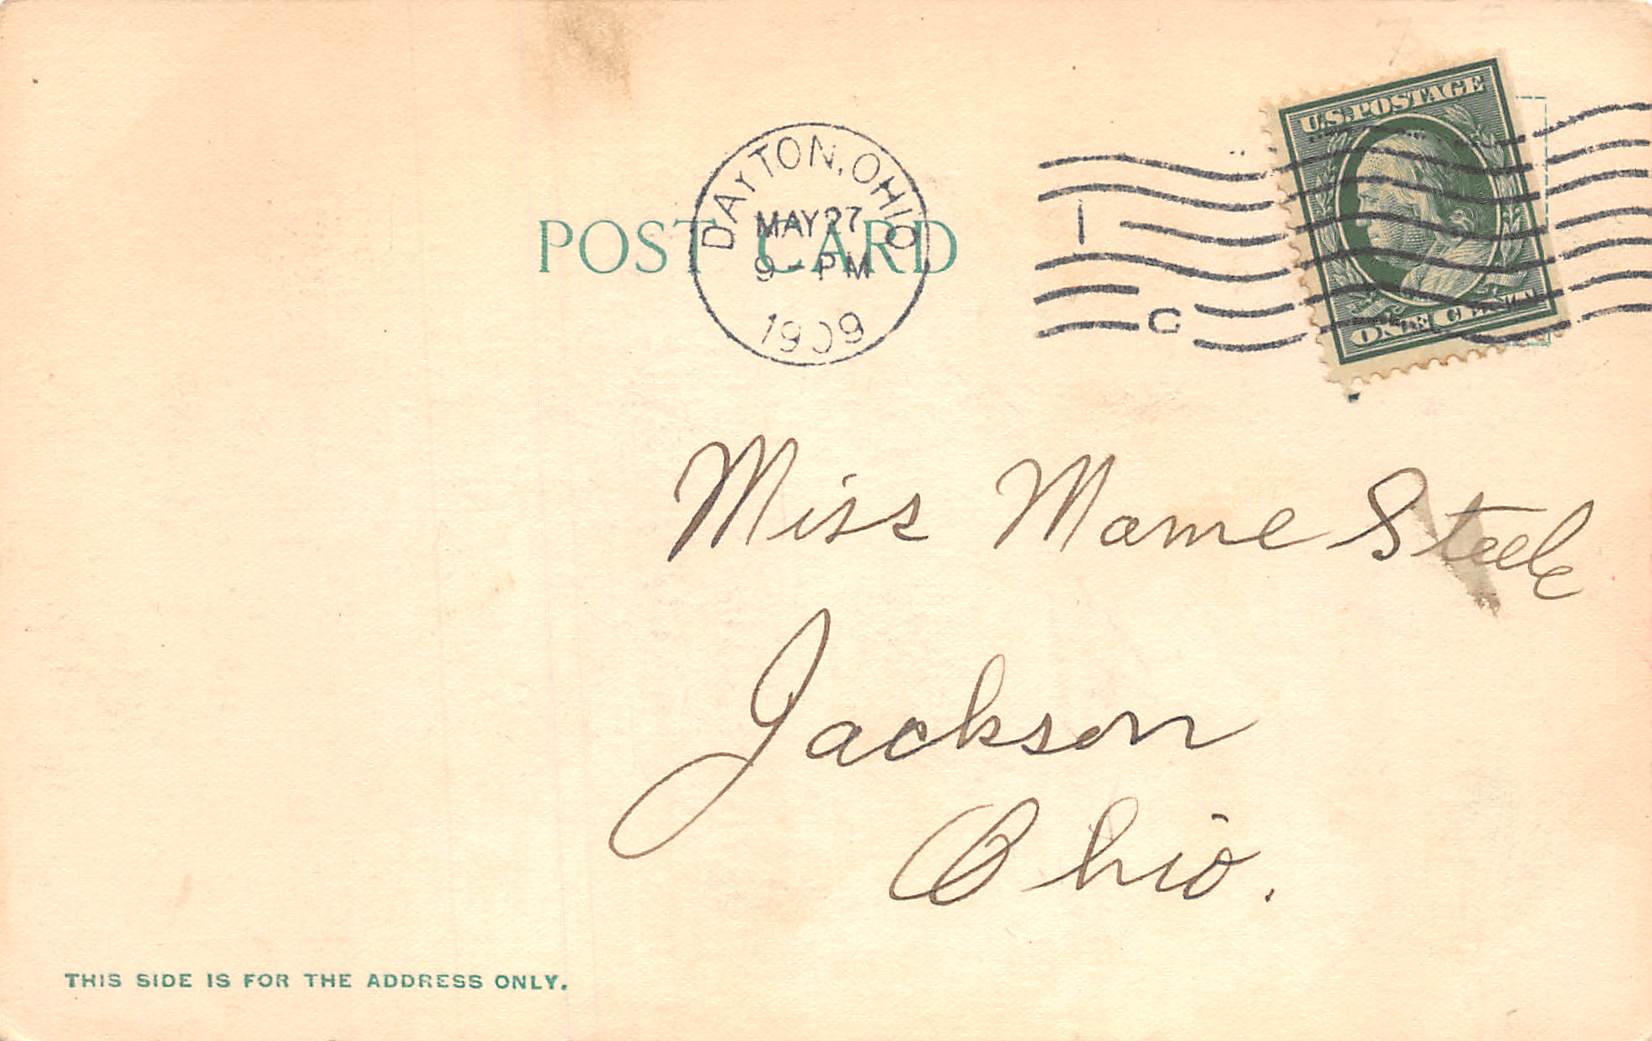 U.S. POSTAGE
DAYTON, OHIO
MAY 27
9 - PM
1909
1
C
POST CARD
ONE CENT
Miss Mame Steele
Jackson
Ohio.
THIS SIDE IS FOR THE ADDRESS ONLY.